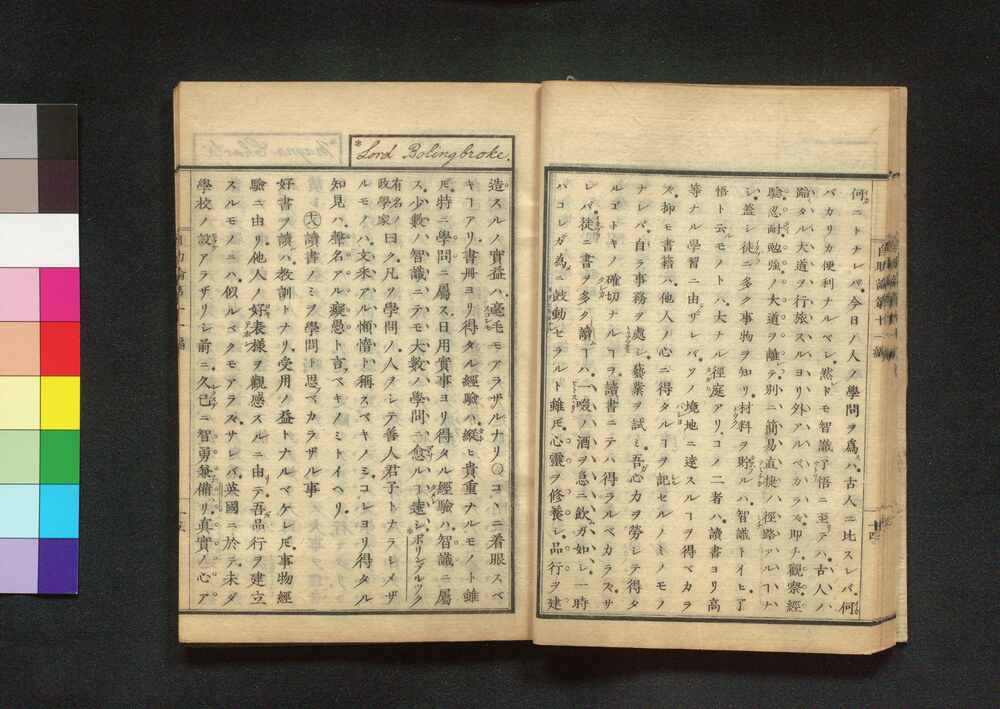 何ニトナレバ今日ノ人ノ學問ヲ爲ハ古人ニ比スレバ何
バカリカ便利ナルベシ然ドモ智識了悟ニ至テハ古人ハ
蹈タル大道ヲ行旅スルヨリ外アルベカラズ即チ觀察經
驗忍耐勉強ノ大道ヲ離テ別ニ簡易直捷ノ徑路アルヿハ
シ蓋シ徒ニ多ク事物ヲ知リ材料ヲ貯ルハ智識トイヒ了
悟ト云モノトハ大ナル徑庭アリコノ二者ハ讀書ヨリ高
等ナル學習ニ由ザレバソノ境地ニ達スルヿヲ得ベカラ
ズ抑モ書籍ハ他人ノ心ニ得タルヿヲ記セルノミノモノ
ナレバ自ラ事務ヲ處シ藝業ヲ試ミ吾心力ヲ勞シテ得タ
ルゴトキノ確切ナルヿヲ讀書ニテハ得ラルベカラズサ
レバ徒ニ書ヲ多ク讀ヿハ一啜ノ酒ヲ急ニ飮ガ如シ一時
ハコレガ爲ニ鼓動セラルト雖𪜈心靈ヲ修養シ品行ヲ建
自助論第十一編
十四
Lord Bolingbroke.
造スルノ實益ハ毫モモアラザルナリコヽニ着眼スベ
キヿアリ書册ヨリ得タル經驗ハ縱ヒ貴重ナルモノト雖
𪜈特ニ學問ニ屬ス日用實事ヨリ得タル經驗ハ智識ニ屬
ス少數ノ智識ニテモ大數ノ學問ニ愈ルヿ遠シボリングブルック
有名ノ政學家曰ク凡ソ學問ノ人ヲシテ善人君子トナラシメザ
ルモノハ文釆アル懶惰ト稱スベキノミコレヨリ得タル
知見ハ聲名アル癡愚ト言ベキノミトイヘリ
讀書ノミヲ學問ト思ベカラザル事
好書ヲ讀ハ教訓トナリ受用ノ益トナルベケレ𪜈事物經
驗ニ由リ他人ノ好表樣ヲ觀感スルニ由テ吾品行ヲ建立
スルモノニハ似ルベクモアラズサレバ英國ニ於テ未ダ
學校ノ設アラザリシ前ニ久シク已ニ智勇兼備リ眞實ノ心ア